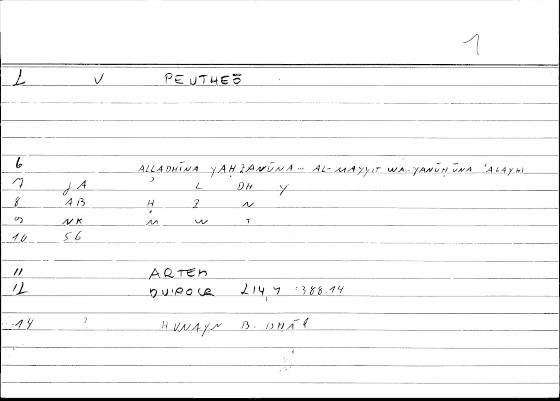 1
L V PEUTHEŌ
6 ALLADHĪNA YAḤZANŪNA – AL-MAYYIT WA-YANŪḤŪNA ʿALAYHI
7 JA L DH Y
8 AB Ḥ Z N
9 NK M W T
10 SG
11 ARTEM
12 L14,7 :388.14
14 ? ḤUNAYN B.